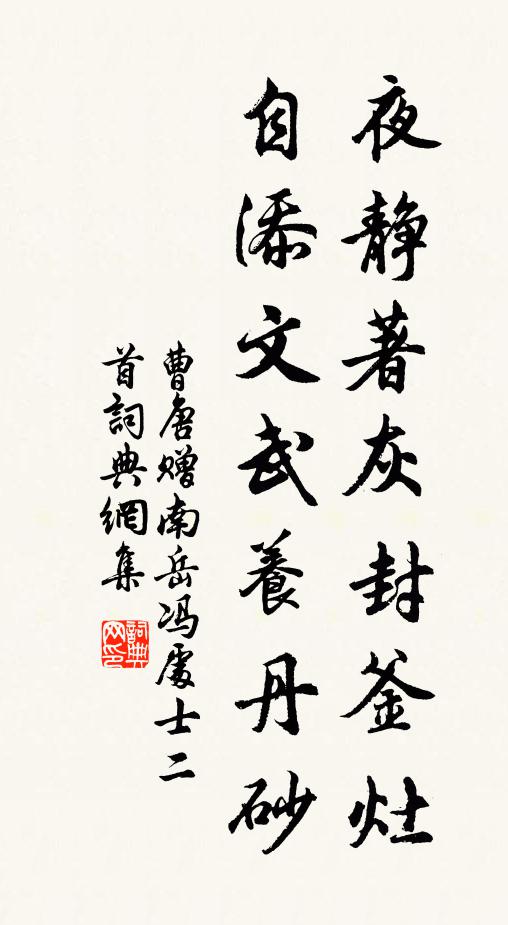 夜静著灰封釜灶
自添文武養丹砂
曹唐贈南岳冯處士二
首詞典網集
詞典网印